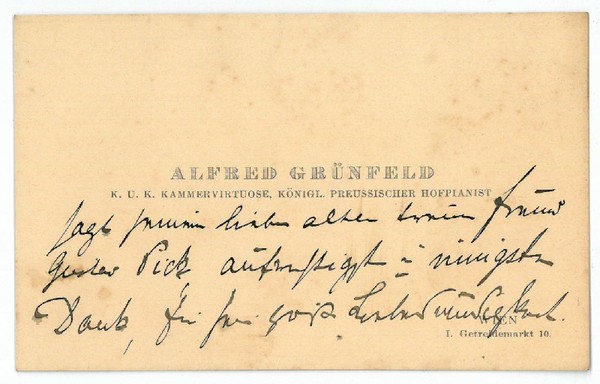 ALFRED GRÜNFELD
K. U. K. KAMMERVIRTUOSE, KÖNIGL. PREUSSISCHER HOFPIANIST
sagt seinem lieben alten treuen Freund
Gustav Pick, aufrichtigst u innigsten
Dank, für seine Liebenswürdigkeit.
WIEN
I. Getreidemarkt 10.